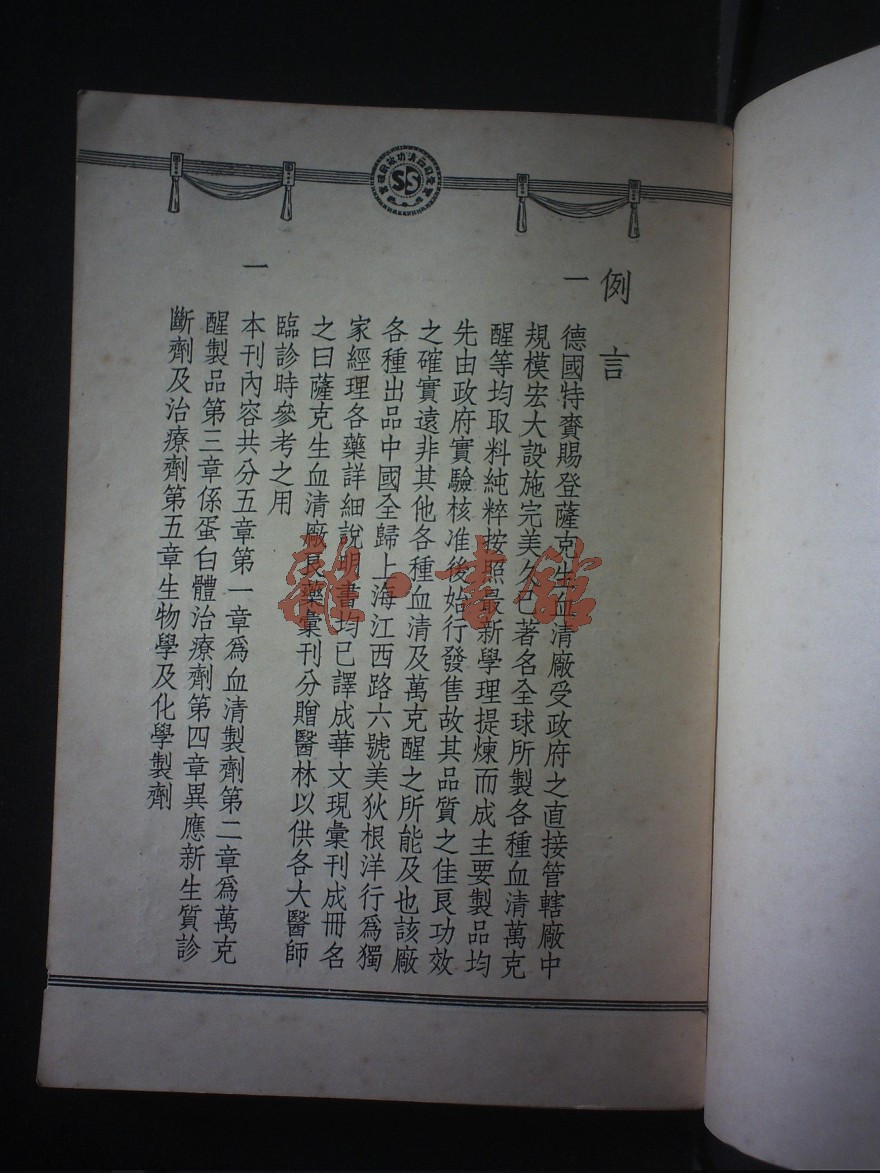 例言
一
德國特賚賜登薩克生血清廠受政府之直接管轄廠中
規模宏大設施完美久已著名全球所製各種血清萬克
醒等均取料純粹按照最新學理提煉而成主要製品均
先由政府實驗核准後始行發售故其品質之佳良功效
之確實遠非其他各種血清及萬克醒之所能及也該廠
各種出品中國全歸上海江西路六號美狄根洋行爲獨
家經理各藥詳細說明書均已譯成華文現彙刊成冊名
之曰薩克生血清廠良藥彙刊分贈醫林以供各大醫師
臨診時參考之用
一
本刊內容共分五章第一章爲血清製劑第二章爲萬克
醒製品第三章係蛋白體治療劑第四章異應新生質診
斷劑及治療劑第五章生物學及化學製劑